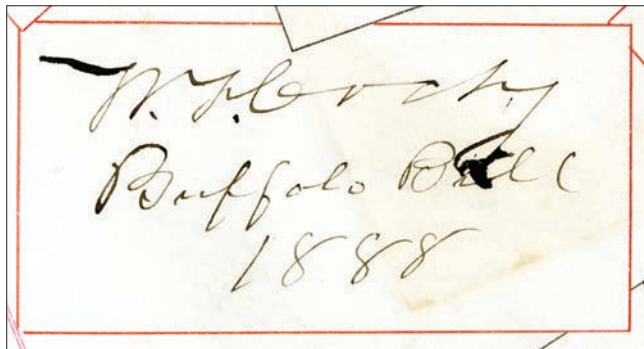 W. F. Cody
Buffalo Bill
1888